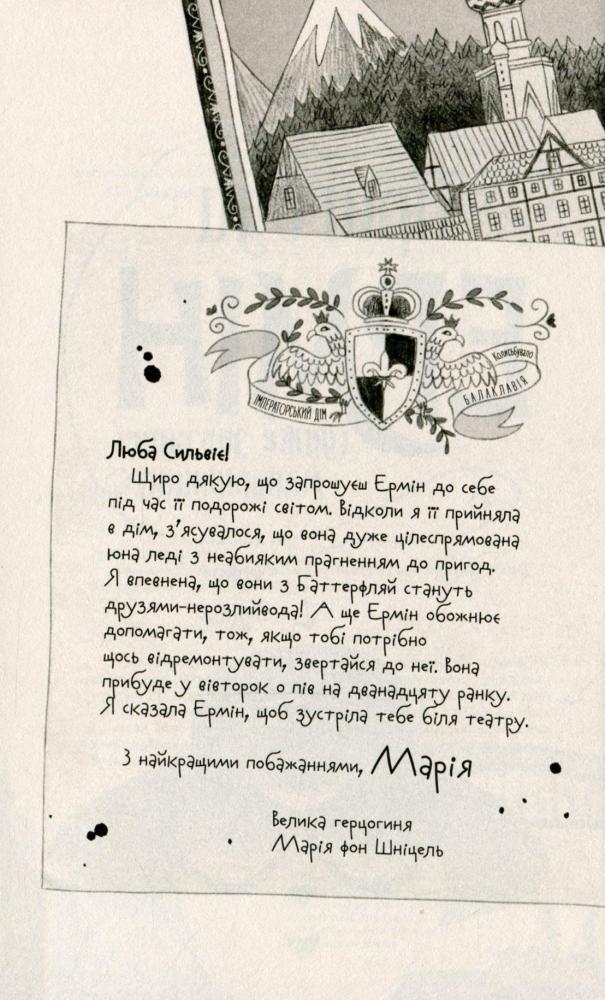 ІМПЕРАТОРСЬКИЙ ДІМ
Колисьбувало
БАЛАКЛАВІЯ
Люба Сильвіє!
Щиро дякую, що запрошуєш Ермін до себе
під час її подорожі світом. Відколи я її прийняла
в дім, з’ясувалося, що вона дуже цілеспрямована
юна леді з неабияким прагненням до пригод.
Я впевнена, що вони з Баттерфляй стануть
друзями-нерозлийвода! А ще Ермін обожнює
допомагати, тож, якщо тобі потрібно
щось відремонтувати, звертайся до неї. Вона
прибуде у вівторок о пів на дванадцяту ранку.
Я сказала Ермін, щоб зустріла тебе біля театру.
З найкращими побажаннями, Марія
Велика герцогиня
Марія фон Шніцель